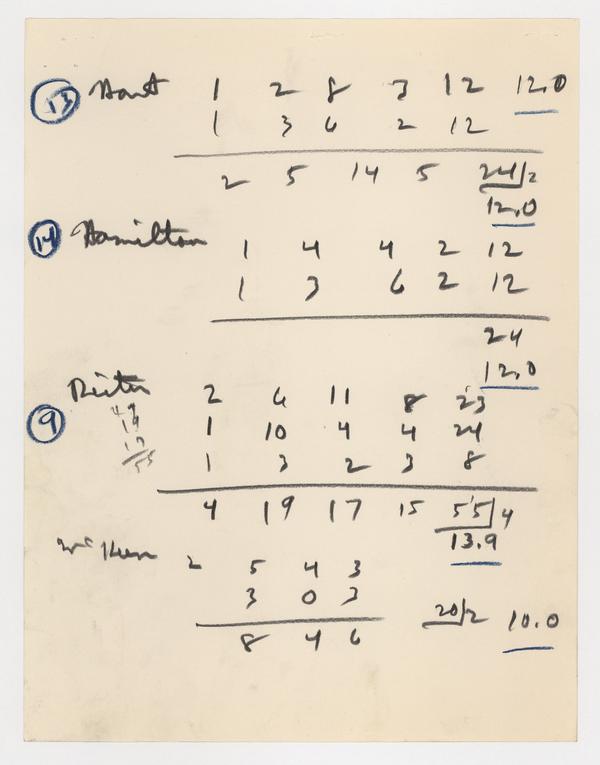 13 Hart 1 2 8 3 12 12.0
1 3 6 2 12
2 5 14 5 24/2
12.0
14 Hamilton 1 4 4 2 12
1 3 6 2 12
24
12.0
2 6 11 8 23
9 1 10 4 4 24
1 3 2 3 8
4 19 17 15 55/4
13.9
2 5 4 3
3 0 3 20/2 10.0
8 4 6